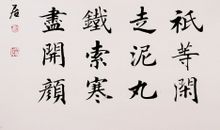 祇等閑
走泥丸
鐵索寒
盡開顔